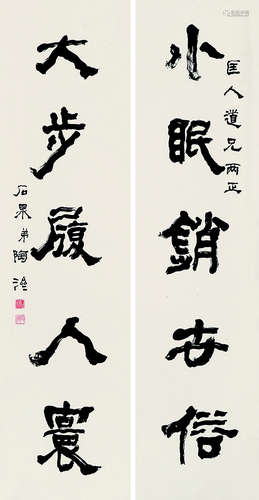 匡人道兄兩正
小眠銷古俗
大步履人寰
石果弟陶